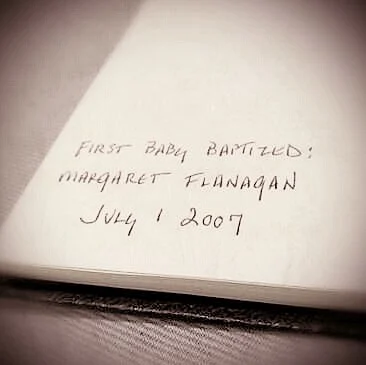 FIRST BABY BAPTIZED:
MARGARET FLANAGAN
JULY 1 2007